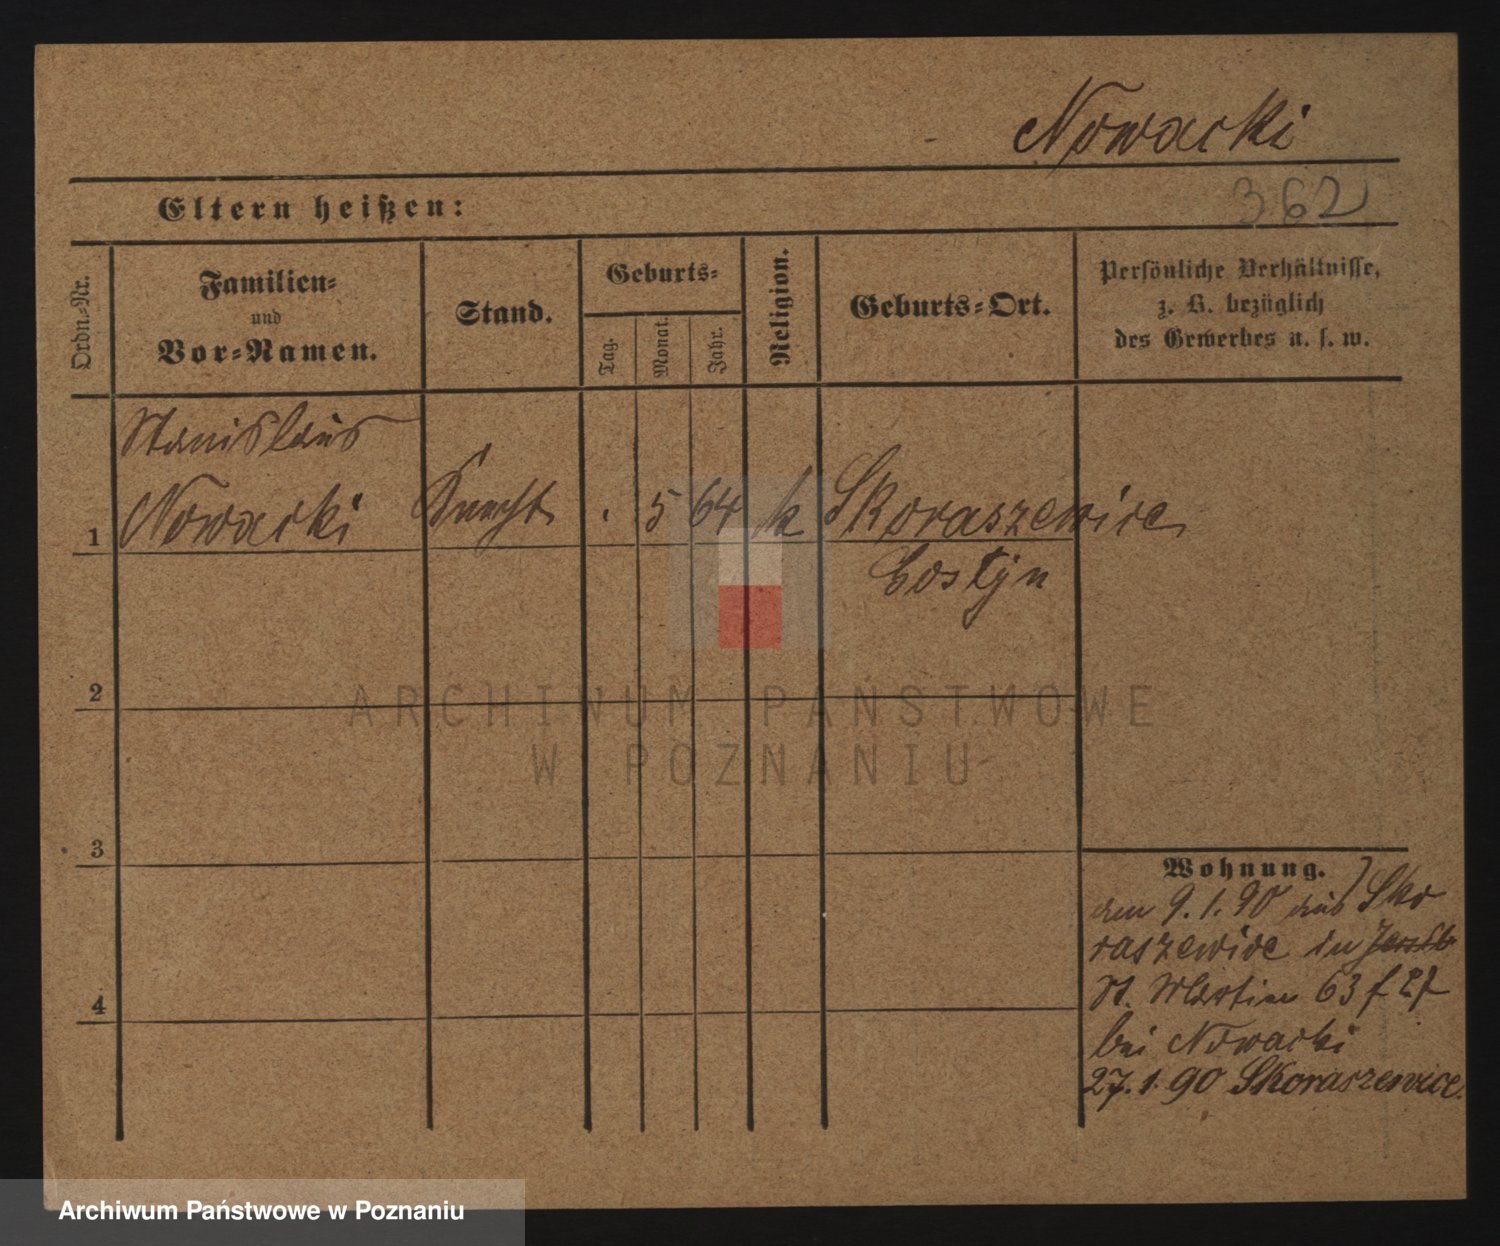 Nowacki
Eltern heißen:
362
Ordn.-Nr.
Familien-
und
Vor-Namen.
Stand.
Geburts-
Tag.
Monat.
Jahr.
Religion.
Geburts-Ort.
Persönliche Verhältnisse,
z. B. bezüglich
des Gewerbes u. s. w.
Stanislaus
1 Nowacki Knecht . 5 64 k Skoraszewice
Gostyn
2
ARCHIWUM PAŃSTWOWE
W POZNANIU
3
Wohnung.
den 9.1.90 aus Sko
raszewice in
St. Martin 63
bei Nowacki
27.1.90 Skoraszewice.
4
Archiwum Państwowe w Poznaniu